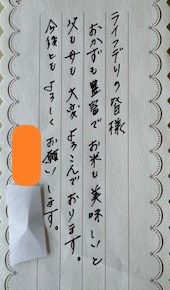 ライフデリの皆様
おかずも豊富でお米も美味しいと
父も母も大変よろこんでおります。
今後ともよろしくお願いします。